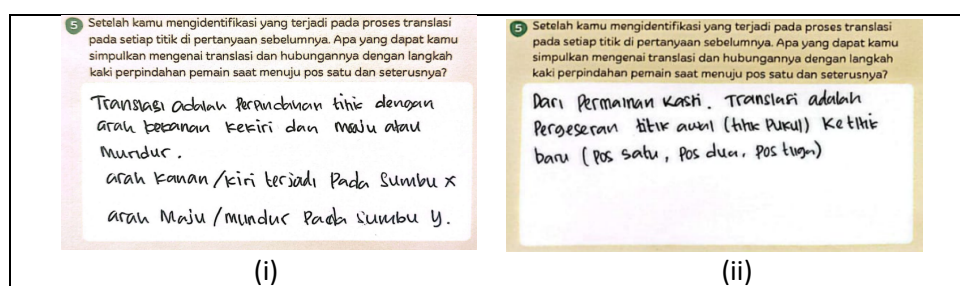 5 Setelah kamu mengidentifikasi yang terjadi pada proses translasi
pada setiap titik di pertanyaan sebelumnya. Apa yang dapat kamu
simpulkan mengenai translasi dan hubungannya dengan langkah
kaki perpindahan pemain saat menuju pos satu dan seterusnya?
Translasi adalah Perpindahan titik dengan
arah kekanan kekiri dan maju atau
mundur.
arah kanan/kiri terjadi Pada Sumbu x
arah Maju/mundur Pada sumbu y.
(i)
5 Setelah kamu mengidentifikasi yang terjadi pada proses translasi
pada setiap titik di pertanyaan sebelumnya. Apa yang dapat kamu
simpulkan mengenai translasi dan hubungannya dengan langkah
kaki perpindahan pemain saat menuju pos satu dan seterusnya?
Dari Permainan Kasti. Translasi adalah
Pergeseran titik awal (titik Pukul) Ketitik
baru (Pos satu, Pos dua, Pos tiga)
(ii)